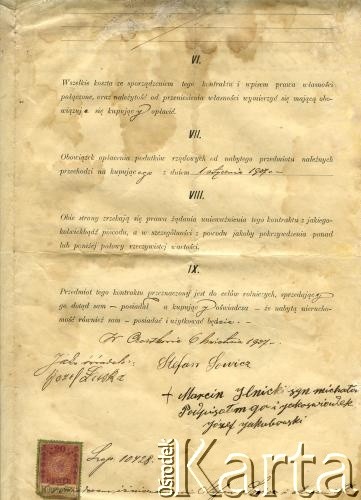 VI.
Wszelkie koszta ze sporządzeniem tego kontraktu i wpisem prawa własności
połączone, oraz należytość od przeniesienia własności wymierzyć się mającą obo-
wiązuje się kupujący opłacić.
VII.
Obowiązek opłacenia podatków rządowych od nabytego przedmiotu należnych
przechodzi na kupującego z dniem 1 stycznia 1907. —
VIII.
Obie strony zrzekają się prawa żądania unieważnienia tego kontraktu z jakiego-
kolwiekbądź powodu, a w szczególności z powodu jakoby pokrzywdzenia ponad
lub poniżej połowy rzeczywistej wartości.
IX.
Przedmiot tego kontraktu przeznaczony jest do celów rolniczych, sprzedający
go dotąd sam — posiadał a kupujący oświadcza — że nabytą nierucho-
mość również sam — posiadać i użytkować będzie. —
kwietnia 1907. —
Jako świadek: Stefan
Józef
+ Marcin Ilnicki syn michała
Podpisałem go i jako świadek
Józef Jakubowski
20
Lzp. 10428.
Ośrodek
Karta